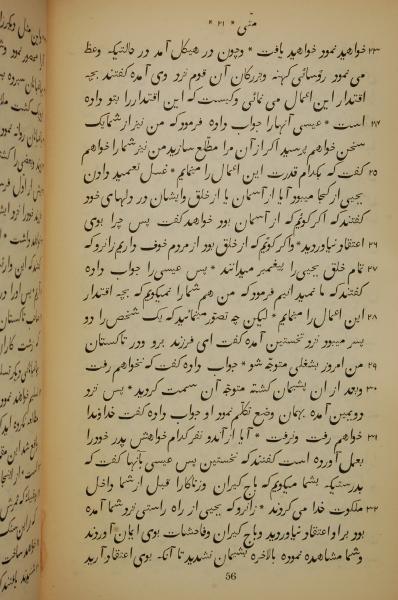 متّی * ۲۱ *
۲۳ خواهید نمود خواهید یافت * وچون در هیکل آمد در حالتیکه وعظ
می نمود رؤسائی کهنه وبزرکان آن قوم نزد وی آمده کفتند بچه
اقتدار این اعمال می نمائی وکیست که این اقتدار را بتو داده
۲۴ است * عیسی آنها را جواب داده فرمود که من نیز از شما یک
سخن خواهم پرسید اکر از آن مرا مطّلع سازید من نیز شما را خواهم
۲۵ کفت که بکدام قدرت این اعمال را مینمایم * غسل تعمید دادن
یحیی از کجا میبود آیا از آسمان یا از خلق وایشان در دلهای خود
کفتند که اکر کوئیم که از آسمان بود خواهد کفت پس چرا بوی
۲۶ اعتقاد نیاوردید * واکر کوئیم که از خلق بود از مردم خوف داریم زانرو که
۲۷ تمام خلق یحیی را پیغمبر میدانند * پس عیسی را جواب داده
کفتند که ما نمیدانیم فرمود که من هم شما را نمیکویم که بچه اقتدار
۲۸ این اعمال را مینمایم * لیکن چه تصوّر مینمائید که یک شخص را دو
پسر میبود نزد نخستین آمده کفت ای فرزند برو ودر تاکستان
۲۹ من امروز بشغلی متوجّه شو * جواب داده کفت که نخواهم رفت
۳۰ وبعد از ان پشیمان کشته متوجّه آن سمت کردید * پس نزد
دویمین آمده بهمان وضع تکلّم نمود او جواب داده کفت خداوندا
۳۱ خواهم رفت ونرفت * آیا از آندو نفر کدام خواهش پدر خود را
بعمل آورده است کفتند که نخستین پس عیسی بآنها کفت که
بدرستیکه بشما میکویم که باج کیران وزناکارا قبل از شما داخل
۳۲ ملکوت خدا می کردند * زانرو که یحیی از راه راستی نزد شما آمده
بود براو اعتقاد نیاوردید وباج کیران وفاحشات بوی ایمان آوردند
وشما مشاهده نموده بالاخره پشیمان نشدید تا آنکه بوی اعتقاد آرید
56